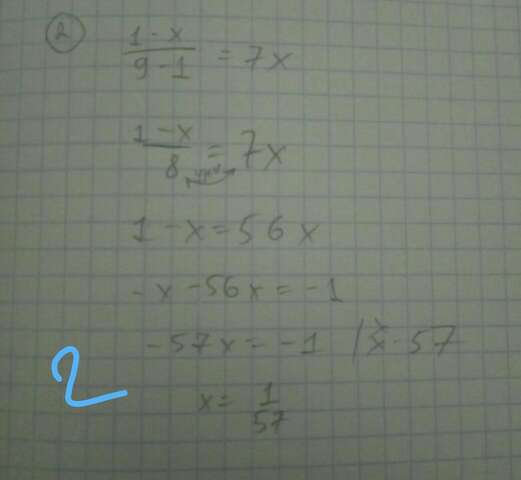 2
1-x/9-1 = 7x
1-x/8 = 7x
1-x=56x
-x-56x=-1
-57x=-1 | 57
2
x=1/57